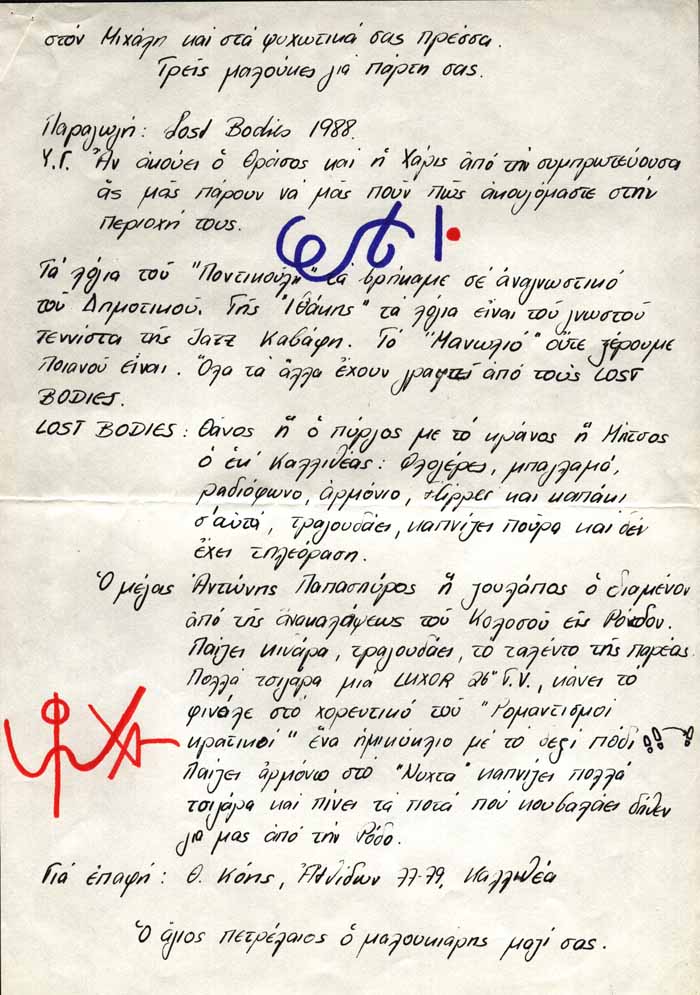 στόν Μιχάλη καί στά ψυχωτικά σας πρέσσα.
Τρείς μαλούκες γιά πάρτη σας.
Παραγωγή: Lost Bodies 1988.
Υ.Γ. Ἄν ακούει ὁ Θράσος καί ἡ Χάρις ἀπό τήν συμπρωτεύουσα
ἄς μᾶς πάρουν νά μᾶς πούν πῶς ἀκουγόμαστε στήν
περιοχή τους.
Τά λόγια τοῦ "Ποντικούλη" τά βρήκαμε σέ ἀναγνωστικό
τοῦ Δημοτικοῦ. Τῆς "Ἰθάκης" τά λόγια εἶναι τοῦ γνωστοῦ
τεννίστα τῆς Jazz Καβάφη. Τό "Μανωλιό" οὔτε ξέρουμε
ποιανού είναι. Ὅλα τά ἄλλα ἔχουν γραφτεί ἀπό τούς LOST
BODIES.
LOST BODIES: Θάνος ἤ ὁ πύργος μέ τό κράνος ἤ Μήτσος
ὁ ἐκ Καλλιθέας: Φλογέρες, μπαγλαμά,
ραδιόφωνο, ἁρμόνιο, flipper καί καπάκι
σ'αὐτά, τραγουδάει, καπνίζει ποῦρα καί δεν
ἔχει τηλεόραση.
Ὁ μέγας Ἀντώνης Παπασπύρος ἤ ζουλάπος ὁ διαμένον
ἀπό τῆς ἀνακαλύψεως τοῦ Κολοσού εἰς Ρόδου.
Παίζει κιθάρα, τραγουδάει, τό ταλέντο τῆς παρέας.
Πολλά τσιγάρα μιά LUXOR 26" T.V., κάνει τό
φινάλε στό χορευτικό τοῦ "Ρομαντισμοί
κρατικοί" ἕνα ἡμικύκλιο μέ τό δεξί πόδι
Παίζει ἁρμόνιο στό "Νύχτα" καπνίζει πολλά
τσιγάρα καί πίνει τά ποτά πού κουβαλάει δῆθεν
γιά μας ἀπό τήν Ρόδο.
Γιά ἐπαφή: Θ. Κόης, 77-79, Καλλιθέα
Ὁ ἅγιος πετρέλαιος ὁ μαλουκιάρης μαζί σας.